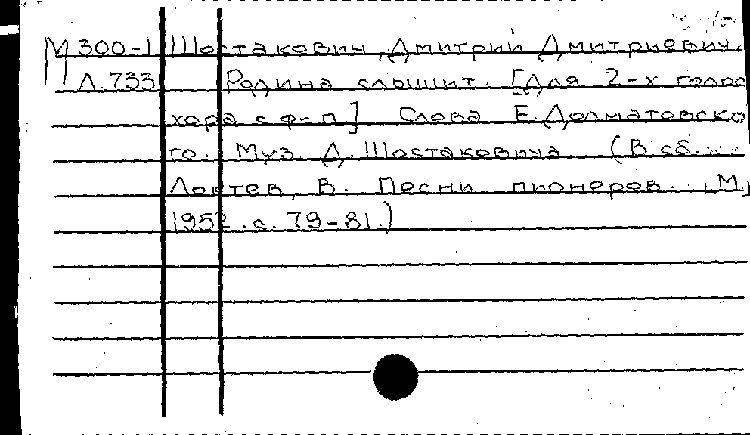 М300-1 Шостакович, Дмитрий Дмитриевич.
Л.733 Родина слышит. [Для 2-х голос
хора с ф-п] Слова Е. Долматовско
го. Муз. Д. Шостаковича (В сб. ...
Локтев, В. Песни пионеров... М.,
1952. с. 79-81.)